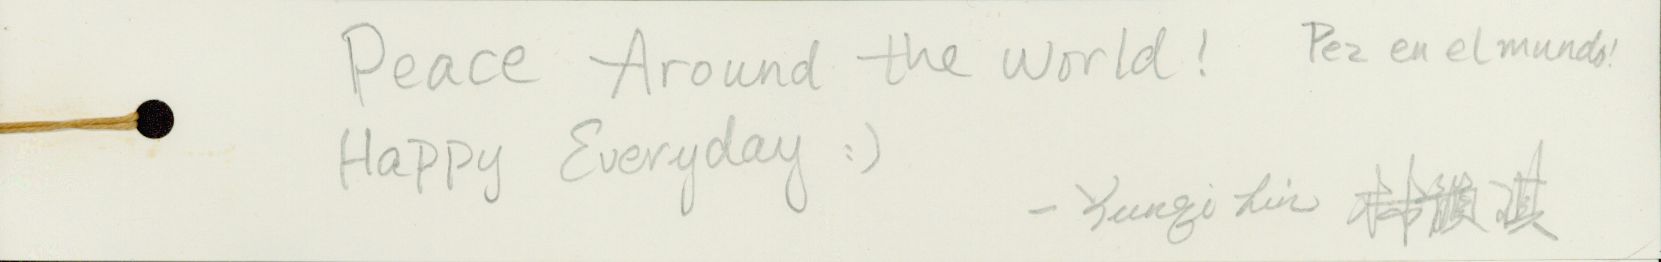 Peace Around the World!
Pez en el mundo!
Happy Everyday :)
- Yunqi Lin 林